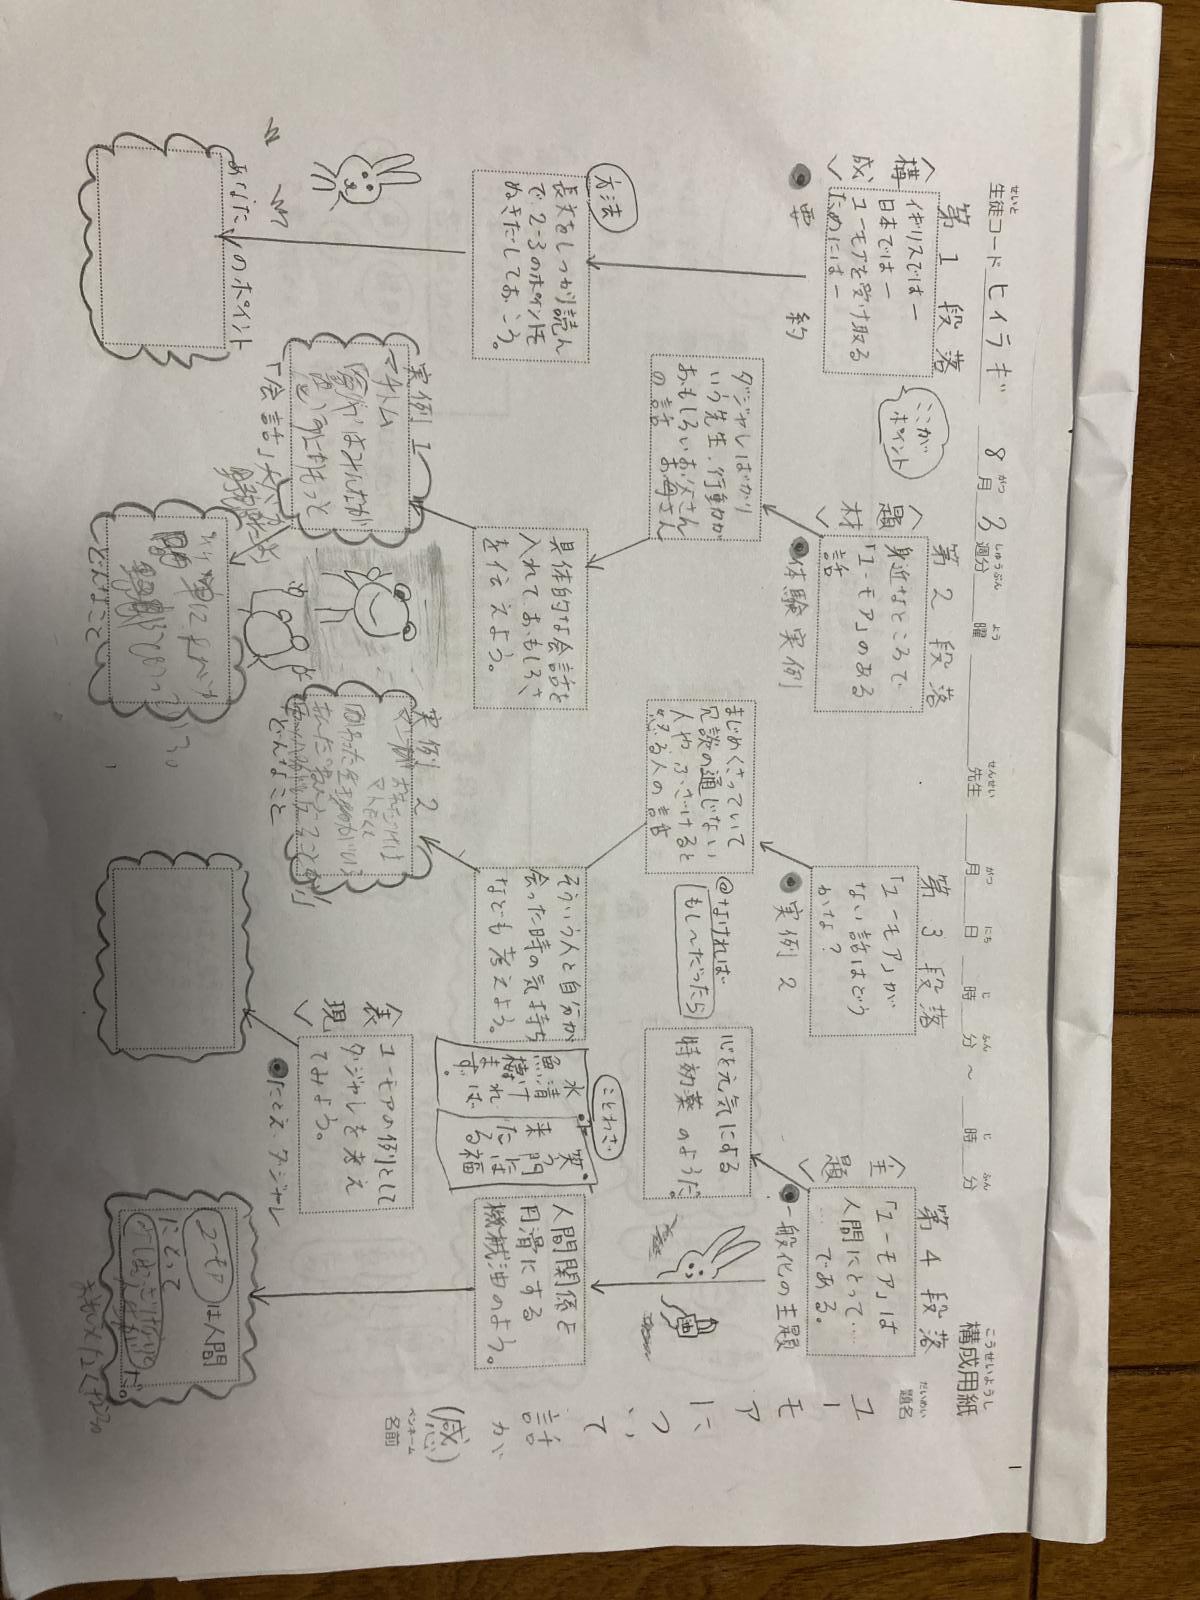 構成用紙
こうせいようし
生徒コード ヒイラギ 8月3週分 曜 先生 月 日 時 分 ~ 時 分
せいと がつ しゅうぶん よう せんせい がつ にち じ ふん じ ふん
題名
だいめい
ユーモアについて
(感)
ペンネーム
名前
1
<構成>
第1段落
イギリスではー
日本ではー
ユーモアを受け取る
ためにはー
●要約
方法
長文をしっかり読ん
で2~3のポイントを
ぬきだしておこう。
あなたのポイント
ここが
ポイント
<題材>
第2段落
身近なところで
「ユーモア」のある
話
●体験実例
ダジャレばかり
いう先生、行動が
おもしろいお父さん
お母さん
の話
具体的な会話を
入れておもしろさ
を伝えよう。
実例1
マクトム
「会話」
どんなこと
第3段落
「ユーモア」が
ない話はどう
かな?
●実例2
まじめくさっていて
冗談の通じない
人や、ふざけると
怒る人の話
@なければ
もし~だったら
そういう人と自分が
会った時の気持ち
なども考えよう。
実例2
どんなこと
<主題>
第4段落
「ユーモア」は
人間にとって……
……である。
●一般化の主題
心を元気にする
特効薬のようだ。
人間関係を
円滑にする
機械油のよう。
油
ことわざ
水清ければ
魚棲まず。
笑う門には福
来たる
<表現>
ユーモアの例として
ダジャレを考え
てみよう。
●たとえ・ダジャレ
ユーモアは人間
にとって
だ。